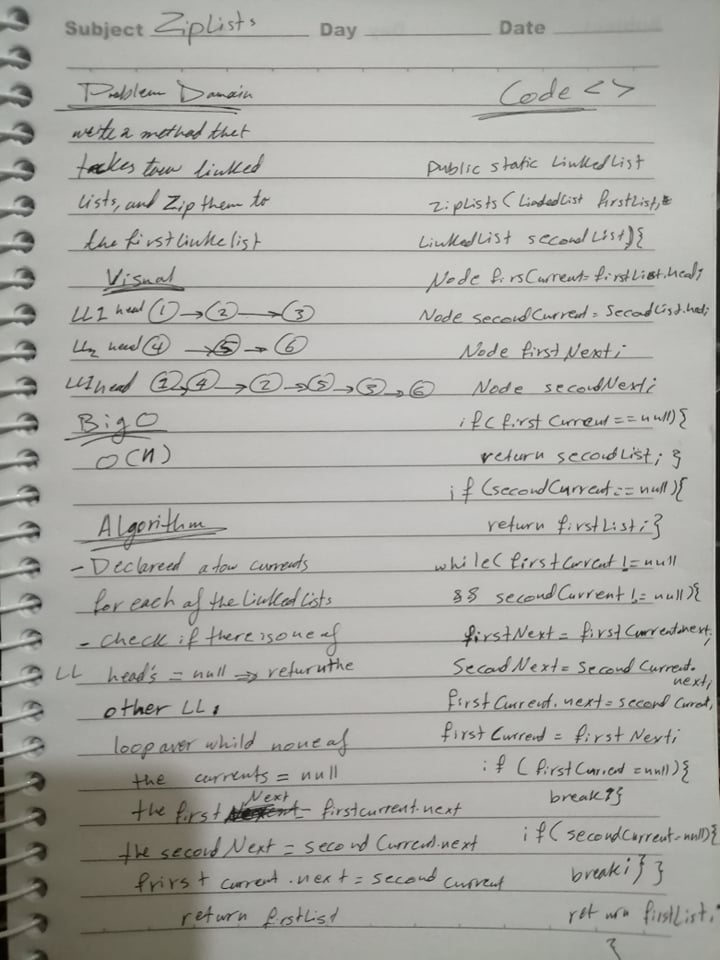 Subject ZipLists Day Date
Problem Domain
write a method that
takes tow linked
lists, and Zip them to
the first linke list
Visual
LL1 head 1 → 2 → 3
LL2 head 4 → 5 → 6
LL1 head 1 → 4 → 2 → 5 → 3 → 6
Big O
O(n)
Algorithm
- Declareed a tow currents
for each of the Linked Lists
- check if there is one of
LL head's = null => return the
other LL.
loop over whild none of
the currents = null
the first Next = firstcurrent.next
the second Next = second Current.next
frirst current.next = second current
return firstList
Code < >
public static LinkedList
zipLists (LinkedList firstList,
LinkedList secondList) {
Node firsCurrent = firstList.head;
Node secondCurrent = SecodList.hed;
Node firstNext;
Node secondNext;
if (first Current == null) {
return secondList; }
if (secondCurrent == null) {
return firstList; }
while (firstCurrent != null
&& secondCurrent != null) {
firstNext = firstCurrent.next;
SecodNext = second Current.
next;
firstCurrent.next = second Current,
firstCurrent = firstNext;
if (firstCurrent = null) {
break; }
if (secondCurrent = null) {
break; } }
return firstList;
}